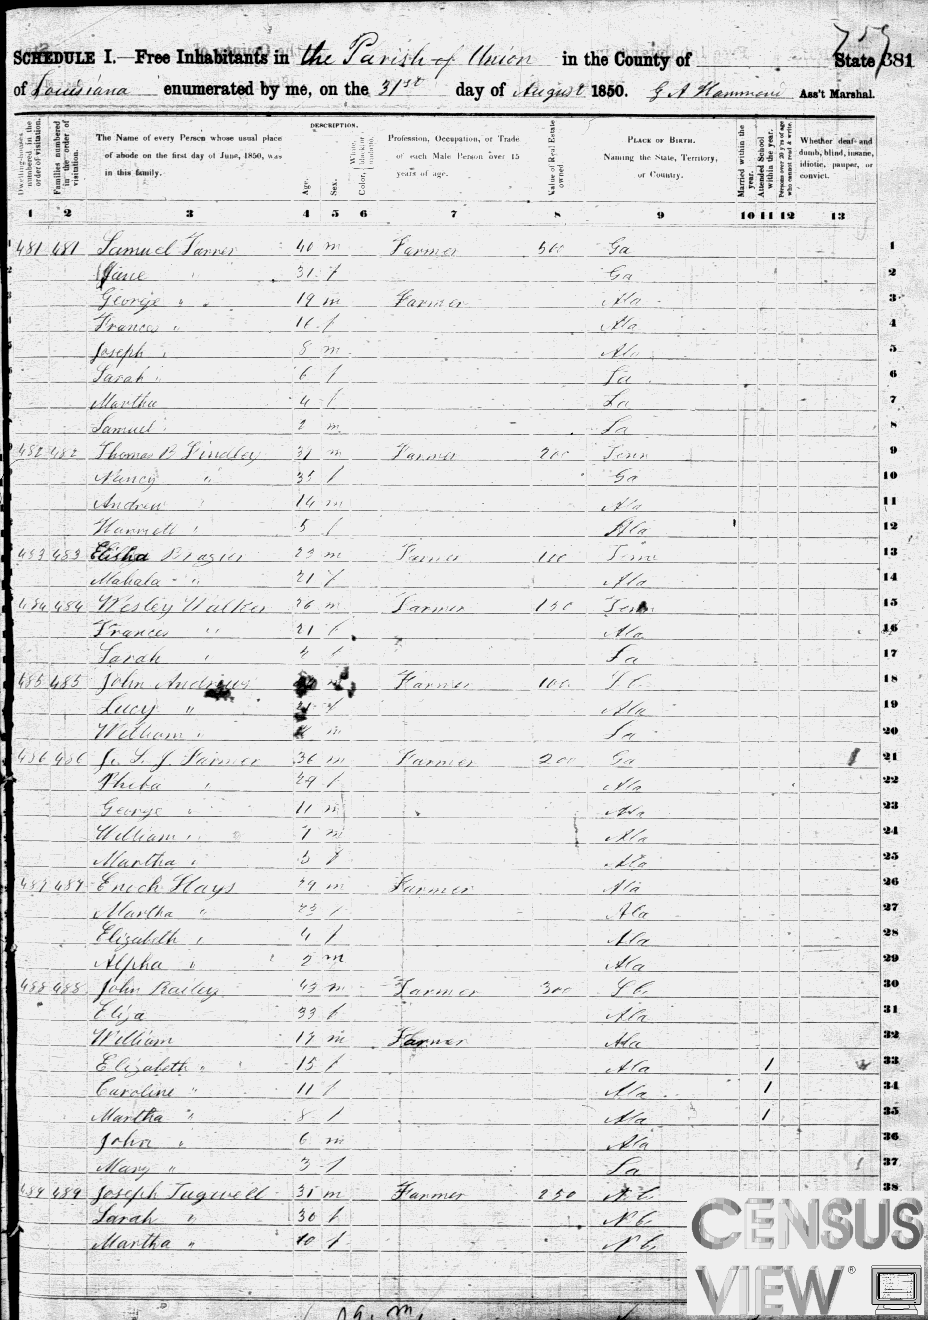 759
SCHEDULE I.—Free Inhabitants in the Parish of Union in the County of State 381
of Louisiana enumerated by me, on the 31st day of August 1850. G A Hammond Ass't Marshal.
Dwelling-houses numbered in the order of visitation.
Families numbered in the order of visitation.
The Name of every Person whose usual place of abode on the first day of June, 1850, was in this family.
DESCRIPTION.
Age.
Sex.
Color, White, black, or mulatto.
Profession, Occupation, or Trade of each Male Person over 15 years of age.
Value of Real Estate owned
PLACE OF BIRTH.
Naming the State, Territory, or Country.
Married within the year.
Attended School within the year.
Persons over 20 y'rs of age who cannot read & write.
Whether deaf and dumb, blind, insane, idiotic, pauper, or convict.
1 2 3 4 5 6 7 8 9 10 11 12 13
1 481 481 Samuel 40 m Farmer 500 Ga 1
2 Jane " 31 f Ga 2
3 George " 19 m Farmer Ala 3
4 Frances " 16 f Ala 4
5 Joseph " 8 m Ala 5
6 Sarah " 6 f La 6
7 Martha 4 f La 7
Samuel " 2 m La 8
9 482 482 Thomas B Findley 31 m Farmer 200 Tenn 9
Nancy " 35 f Ga 10
Andrew " 14 m Ala 11
Harriett " 5 f Ala 12
483 483 Elisha Brazier 23 m Farmer 100 Tenn 13
Mahala " 21 f Ala 14
484 484 Wesley Walker 26 m Farmer 150 Tenn 15
Frances " 21 f Ala 16
Sarah " f La 17
485 485 John Andrews m Farmer 100 S C 18
Lucy " 21 f Ala 19
William " m La 20
486 486 J. S. J Farmer 36 m Farmer 200 Ga 21
Pheba " 29 f Ala 22
George " 11 m Ala 23
William " 7 m Ala 24
Martha " 3 f Ala 25
487 487 Enoch Hays 29 m Farmer Ala 26
Martha " 23 f Ala 27
Elizabeth " 4 f Ala 28
Alpha " 2 m Ala 29
488 488 John Bailey 43 m Farmer 300 S C 30
Eliza 33 f Ala 31
William 17 m Farmer Ala 32
Elizabeth " 15 f Ala 1 33
Caroline " 11 f Ala 1 34
Martha " 8 f Ala 1 35
John " 6 m Ala 36
Mary " 3 f La 37
489 489 Joseph Tugwell 35 m Farmer 250 N C 38
Sarah " 30 f N C
Martha " 10 f N C
CENSUS
VIEW®